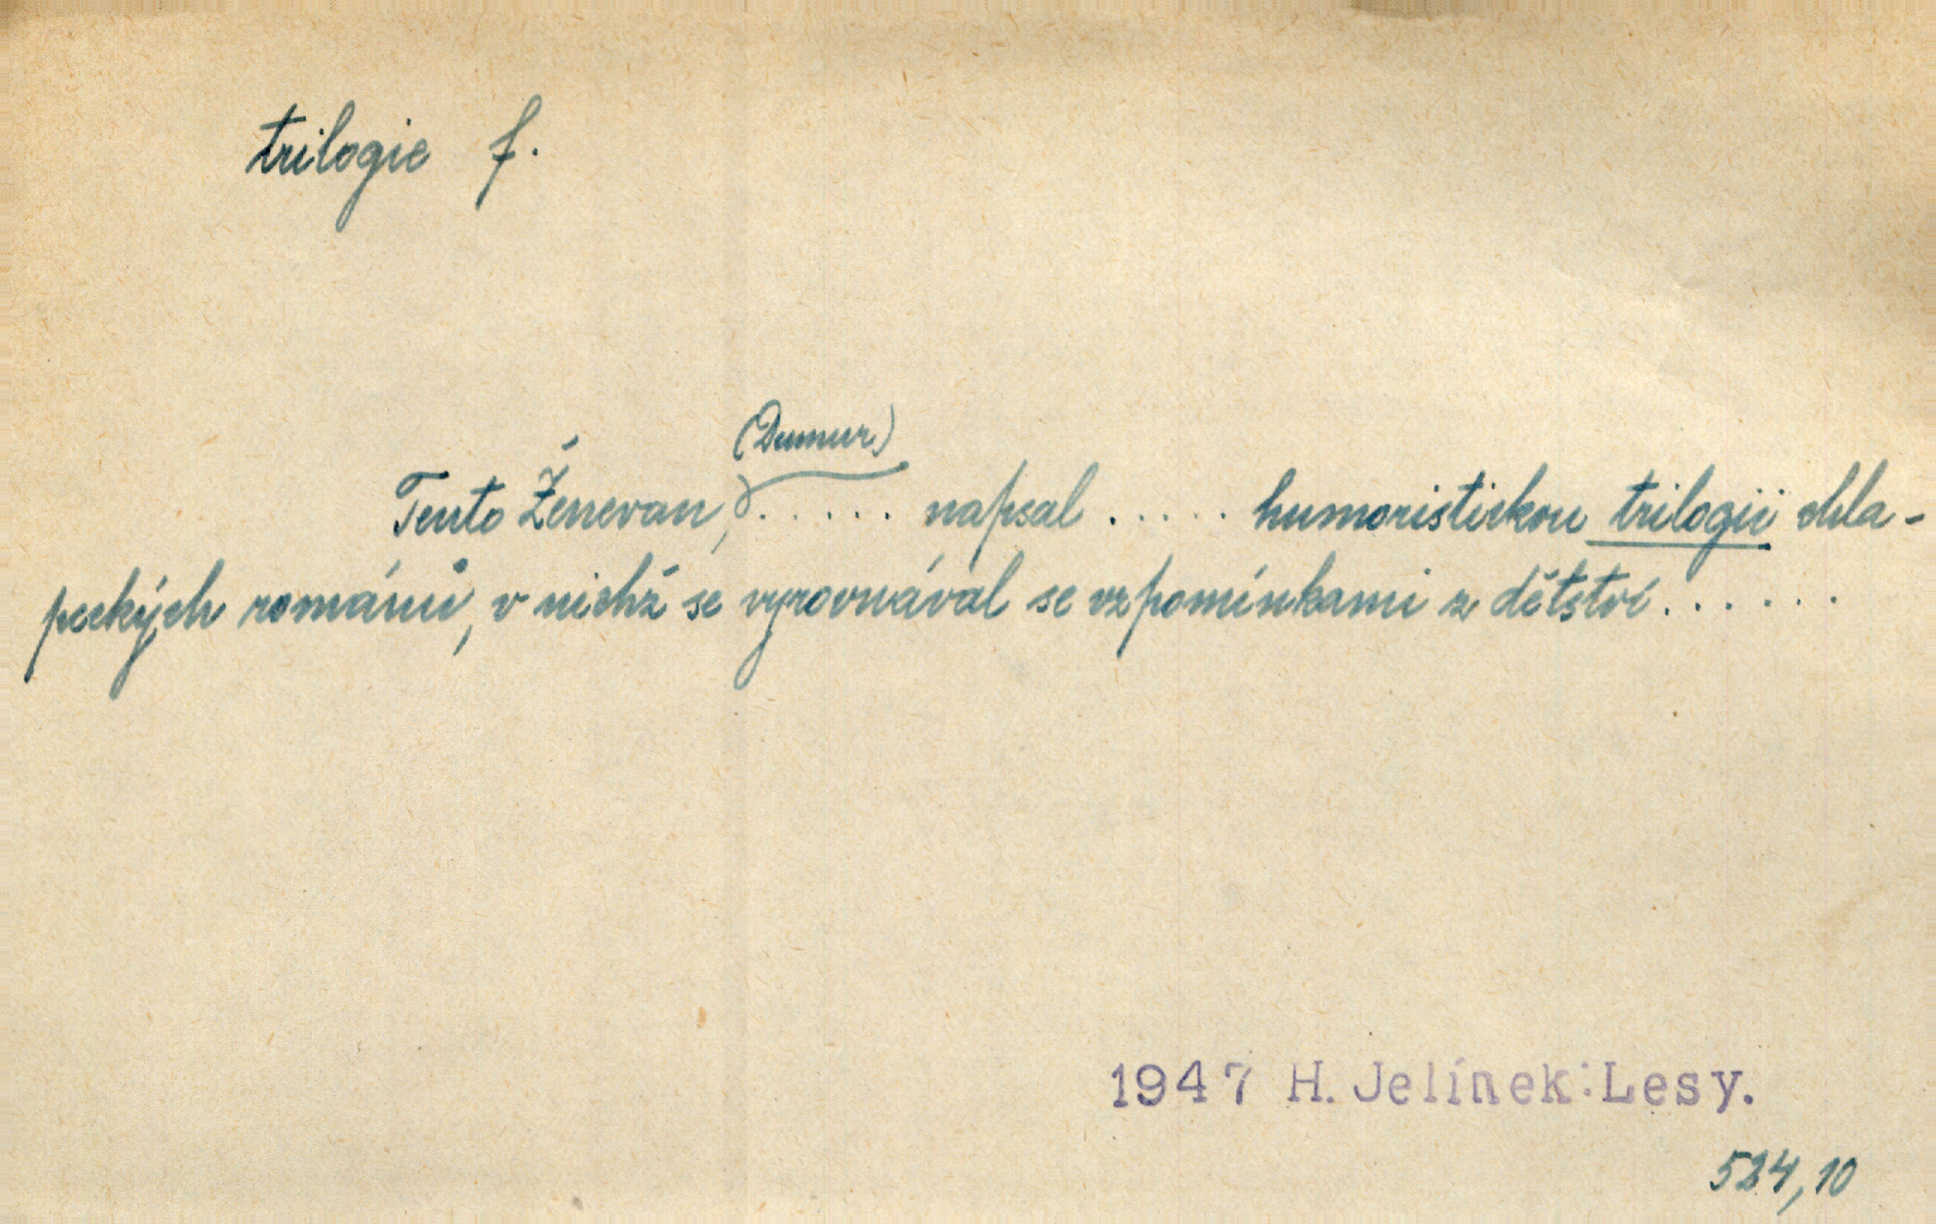 trilogie f.
(Dumur)
Tento Ženevan, ..... napsal ..... humoristickou trilogii chla-
peckých románů, v nichž se vyrovnával se vzpomínkami z dětství......
1947 H. Jelínek:Lesy.
524,10